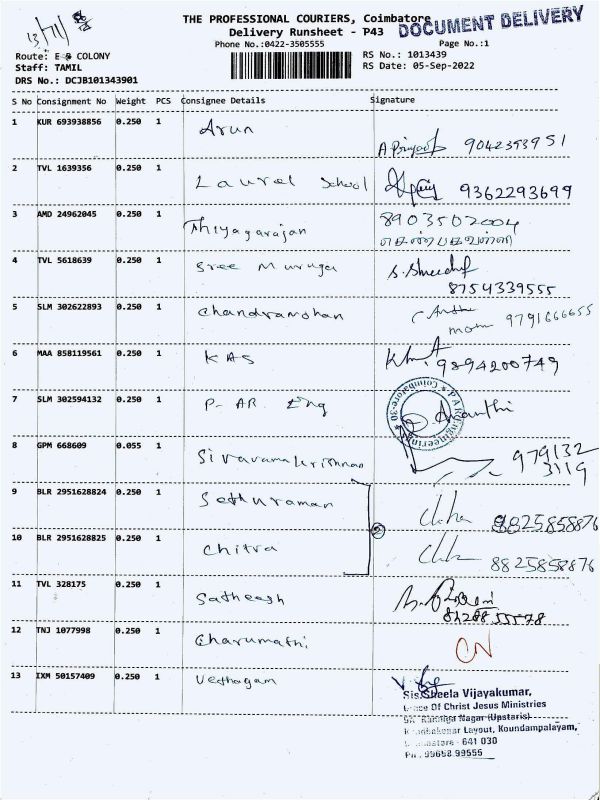 THE PROFESSIONAL COURIERS, Coimbatore
DOCUMENT DELIVERY
Delivery Runsheet - P43
13/71/
Phone No.:0422-3505555
Page No.:1
Route: E B COLONY
RS No.: 1013439
Staff: TAMIL
RS Date: 05-Sep-2022
DRS No.: DCJB101343901
S No Consignment No Weight PCS Consignee Details Signature
1 KUR 693938856 0.250 1 Arun
9042353951
2 TVL 1639356 0.250 1 Laurel School 9362293699
3 AMD 24962045 0.250 1 Thiyagarajan 8903502004
4 TVL 5618639 0.250 1 Sree Muruga
8754339555
5 SLM 302622893 0.250 1 Chandramohan 9791666655
6 MAA 858119561 0.250 1 KAS 9894200749
7 SLM 302594132 0.250 1 P- AR Eng Ananthi
P.A.R Engineering Coimbatore-30
8 GPM 668609 0.055 1 Sivaramakrishnan 979132
3119
9 BLR 2951628824 0.250 1 Sethuraman 8825858876
2
10 BLR 2951628825 0.250 1 Chitra 8825858876
11 TVL 328175 0.250 1 Satheesh
12 TNJ 1077998 0.250 1 Charumathi CN
13 IXM 50157409 0.250 1 Vethagam
Sis.Sheela Vijayakumar,
Of Christ Jesus Ministries
Nagar (Upstaris)
Layout, Koundampalayam,
- 641 030
99658 99555